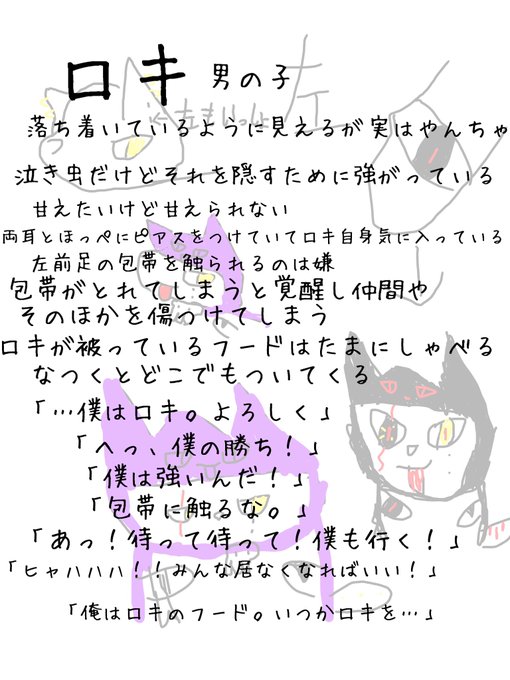 ロキ 男の子
落ち着いているように見えるが実はやんちゃ
泣き虫だけどそれを隠すために強がっている
甘えたいけど甘えられない
両耳とほっぺにピアスをつけていてロキ自身気に入っている
左前足の包帯を触られるのは嫌
包帯がとれてしまうと覚醒し仲間や
そのほかを傷つけてしまう
ロキが被っているフードはたまにしゃべる
なつくとどこでもついてくる
「…僕はロキ。よろしく」
「へっ、僕の勝ち！」
「僕は強いんだ！」
「包帯に触るな。」
「あっ！待って待って！僕も行く！」
「ヒャハハハ！！みんな居なくなればいい！」
「俺はロキのフード。いつかロキを…」
左